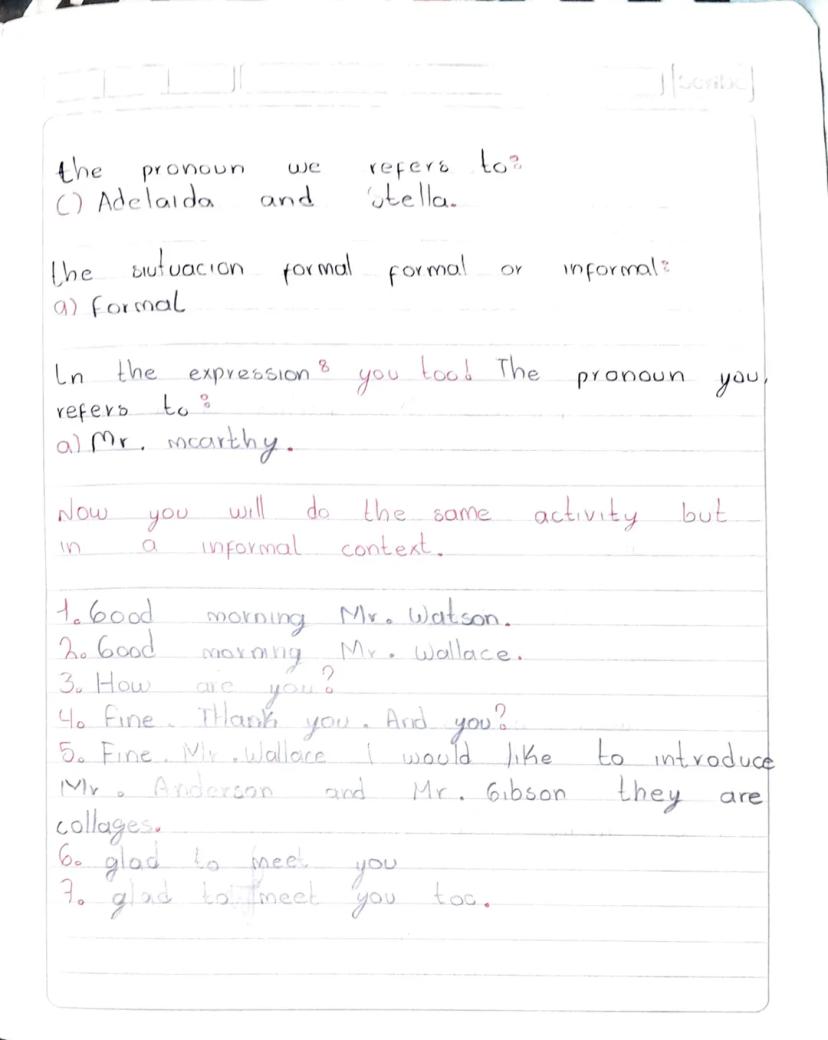 Scribe
the pronoun we refers to?
c) Adelaida and Stella.
the siutuacion formal formal or informal?
a) formal
In the expression: you too! The pronoun you,
refers to:
a) Mr. mcarthy.
Now you will do the same activity but
in a informal context.
1. Good morning Mr. Watson.
2. Good morning Mr. Wallace.
3. How are you?
4. Fine. Thank you. And you?
5. Fine. Mr. Wallace I would like to introduce
Mr. Anderson and Mr. Gibson they are
collages.
6. glad to meet you
7. glad to meet you too.